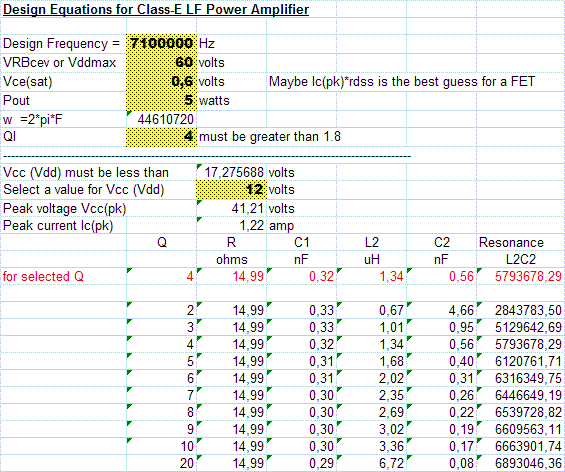 Design Equations for Class-E LF Power Amplifier
Design Frequency = 7100000 Hz
VRBcev or Vddmax 60 volts
Vce(sat) 0,6 volts Maybe Ic(pk)*rdss is the best guess for a FET
Pout 5 watts
w =2*pi*F 44610720
Ql 4 must be greater than 1.8
Vcc (Vdd) must be less than 17,275688 volts
Select a value for Vcc (Vdd) 12 volts
Peak voltage Vcc(pk) 41,21 volts
Peak current Ic(pk) 1,22 amp
Q R C1 L2 C2 Resonance
ohms nF uH nF L2C2
for selected Q 4 14,99 0,32 1,34 0,56 5793678,29
2 14,99 0,33 0,67 4,66 2843783,50
3 14,99 0,33 1,01 0,95 5129642,69
4 14,99 0,32 1,34 0,56 5793678,29
5 14,99 0,31 1,68 0,40 6120761,71
6 14,99 0,31 2,02 0,31 6316349,75
7 14,99 0,30 2,35 0,26 6446649,19
8 14,99 0,30 2,69 0,22 6539728,82
9 14,99 0,30 3,02 0,19 6609563,11
10 14,99 0,30 3,36 0,17 6663901,74
20 14,99 0,29 6,72 0,08 6893046,36